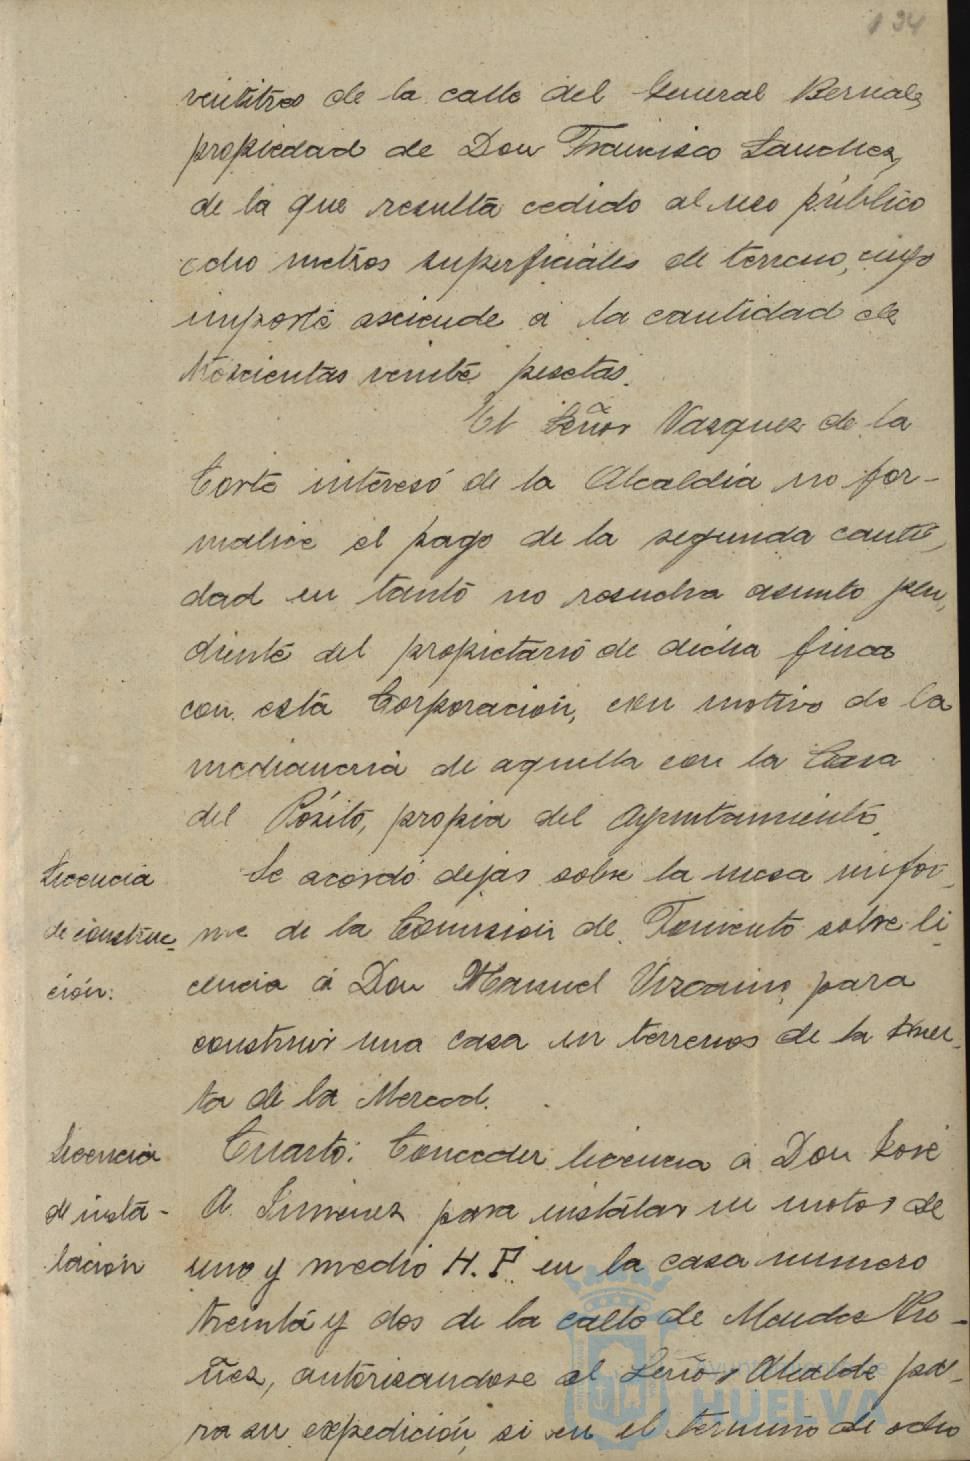 134
veintitres de la calle del General Bernal,
propiedad de Don Francisco Sanchez,
de la que resulta cedido al uso público
ocho metros superficiales de terreno, cuyo
importe asciende a la cantidad de
trescientas veinte pesetas.
El Señor Vazquez de la
Corte interesó de la Alcaldia no for-
malice el pago de la segunda canti-
dad en tanto no resuelva asunto pen-
diente del propietario de dicha finca
con esta Corporación, con motivo de la
medianeria de aquella con la Casa
del Pósito, propia del Ayuntamiento.
Licencia
de construc-
ción:
Se acordó dejar sobre la mesa infor-
me de la Comision de Fomento sobre li-
cencia á Don Manuel Vizcaino, para
construir una casa en terrenos de la Huer-
ta de la Merced.
Licencia
de insta-
lación
Cuarto: Conceder licencia á Don José
A. Jimenez para instalar un motor de
uno y medio H. P. en la casa numero
treinta y dos de la calle de Mendez Nu-
ñez, autorisandose al Señor Alcalde pa-
ra su expedición, si en el termino de ocho
Ayuntamiento de
HUELVA